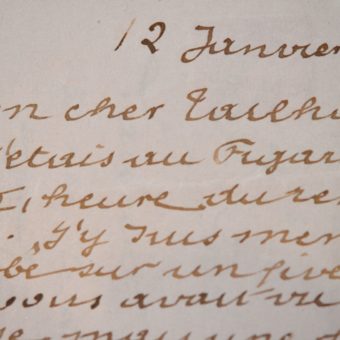 12 Janvier
on cher Tailh
j'étais au Figar
l, heure du re
. J'y suis
bé sur un
vous avait vu